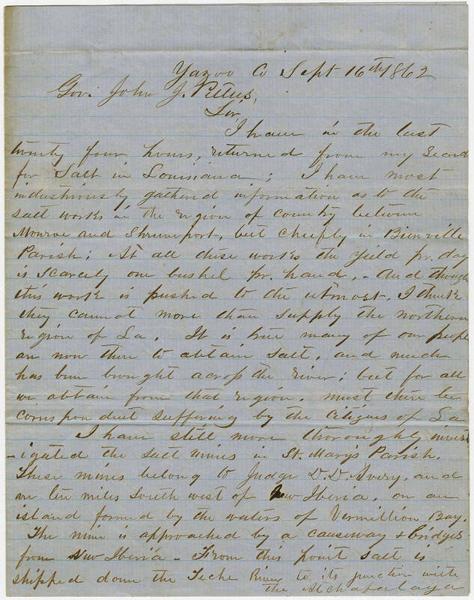 Yazoo Co Sept 16th 1862
Gov. John J. Pettus,
Sir
I have in the last
twenty four hours, returned from my search
for Salt in Louisiana; I have most
industriously gathered information as to the
salt works in the region of country between
Monroe and Shreveport, but chiefly in Bienville
Parish; At all these works the yield pr. day
is scarcely one bushel pr. hand, - And though
this work is pushed to the utmost, I think
they cannot more than supply the northern
region of La. It is true many of our people
are now there to obtain salt, and much
has been brought across the river; but for all
we obtain from that region, must there be
correspondent suffering by the Citizens of La
I have still more thoroughly invest
-igated the salt mines in St. Marys Parish.
These mines belong to Judge D. D. Avery, and
are ten miles South west of New Iberia, on an
island formed by the waters of Vermillion Bay.
The mine is approached by a causeway & bridges
from New Iberia - From this point salt is
shipped down the Teche River to its junction with
the Atchafalaya